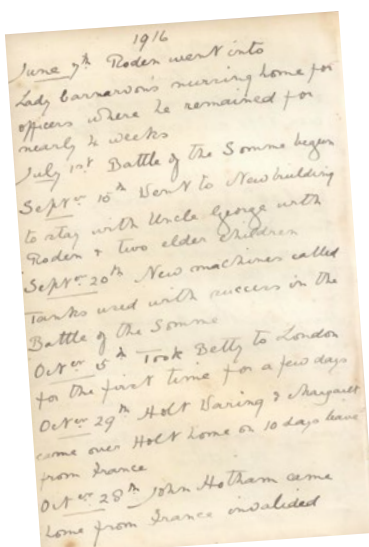 1916
June 7th Roden went into
Lady Carnarvon's nursing home for
officers where he remained for
nearly 4 weeks
July 1st Battle of the Somme begun
Septr 10th Went to Newbuilding
to stay with Uncle George with
Roden & two elder children
Septr 20th New machines called
Tanks used with success in the
Battle of the Somme
Octer 5th Took Betty to London
for the first time for a few days
Octer 29th Holt Waring & Margaret
came over Holt home on 10 days leave
from France
Octer 28th John Hotham came
home from France invalided